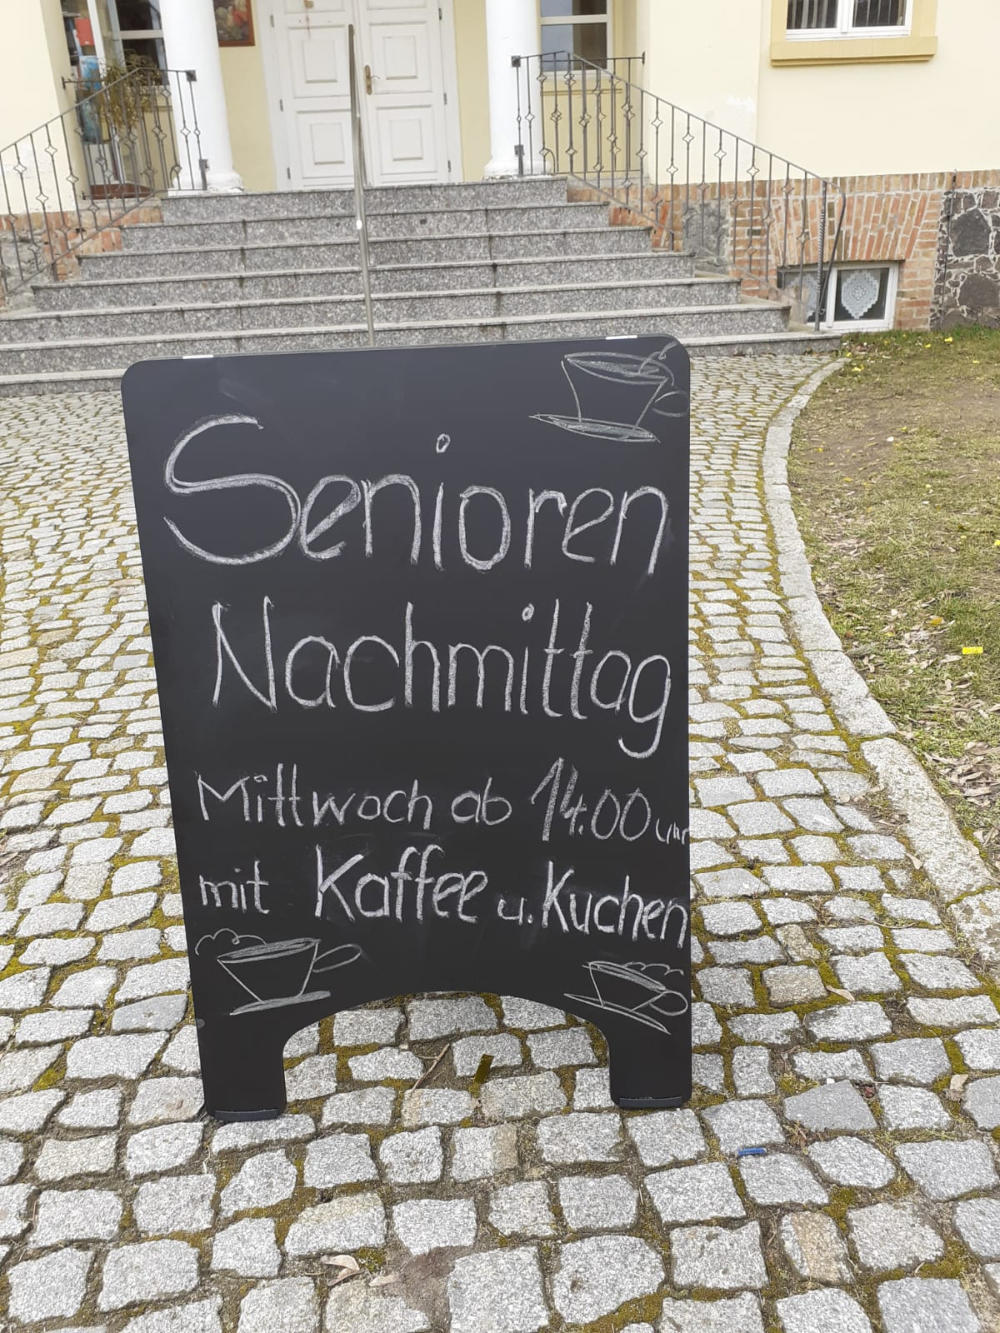 Senioren
Nachmittag
Mittwoch ab 14.00 Uhr
mit Kaffee u. Kuchen